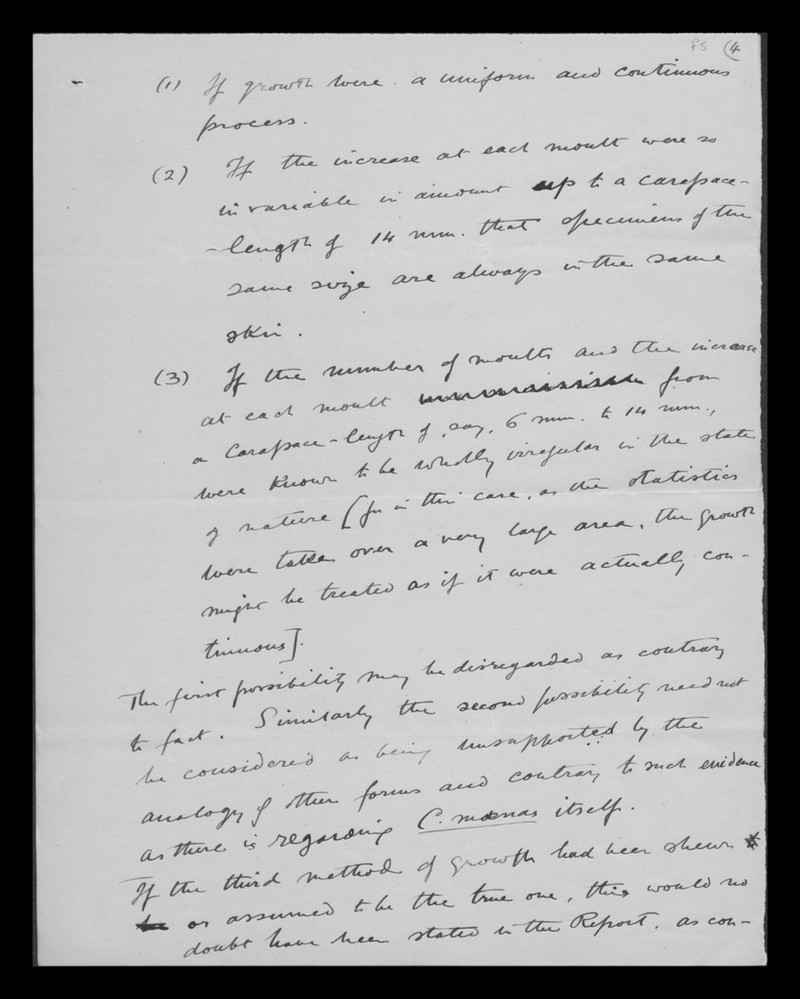 P5 (4
(1) If growth were a uniform and continuous
process.
(2) If the increase at each moult were so
invariable in amount up to a carapace-
-length of 14 mm. that specimens of the
same size are always in the same
skin.
(3) If the number of moults and the increase
at each moult from
a carapace-length of, say, 6 mm. to 14 mm.,
were known to be wholly irregular in the state
of nature [for in this case, as the statistics
were taken over a very large area, the growth
might be treated as if it were actually con-
tinuous].
The first possibility may be disregarded as contrary
to fact. Similarly the second possibility need not
be considered as being unsupported by the
analogy of other forms and contrary to such evidence
as there is regarding C. mænas itself.
If the third method of growth had been shewn
or assumed to be the true one, this would no
doubt have been stated in the Report, as con-